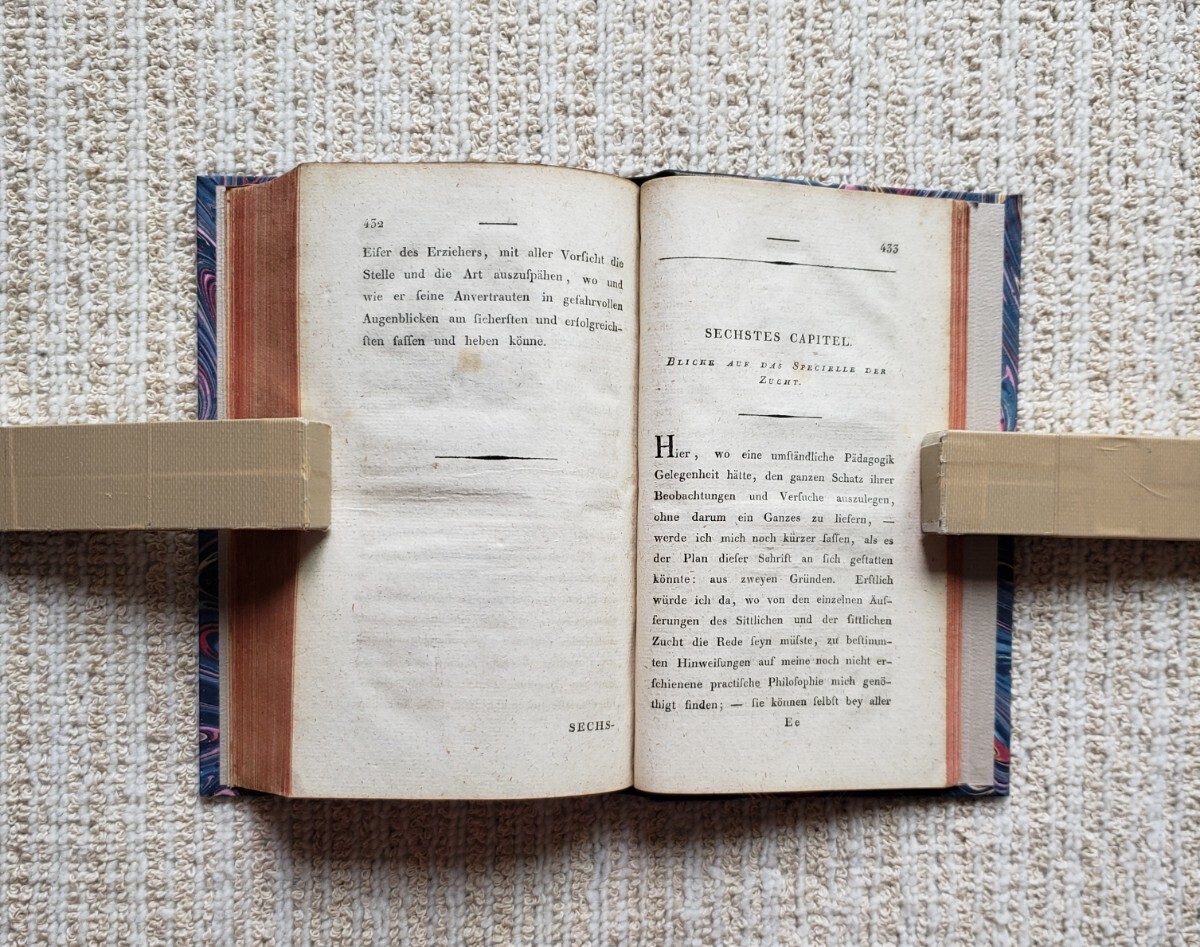 432
Eifer des Erziehers, mit aller Vorſicht die
Stelle und die Art auszuſpähen, wo und
wie er ſeine Anvertrauten in gefahrvollen
Augenblicken am ſicherſten und erfolgreich-
ſten faſſen und heben könne.
SECHS-
433
SECHSTES CAPITEL.
BLICKE AUF DAS SPECIELLE DER
ZUCHT.
Hier, wo eine umſtändliche Pädagogik
Gelegenheit hätte, den ganzen Schatz ihrer
Beobachtungen und Verſuche auszulegen,
ohne darum ein Ganzes zu liefern, —
werde ich mich noch kürzer faſſen, als es
der Plan dieſer Schrift an ſich geſtatten
könnte: aus zweyen Gründen. Erſtlich
würde ich da, wo von den einzelnen Äuſ-
ſerungen des Sittlichen und der ſittlichen
Zucht die Rede ſeyn müſste, zu beſtimm-
ten Hinweiſungen auf meine noch nicht er-
ſchienene practiſche Philoſophie mich genö-
thigt finden; — ſie können ſelbſt bey aller
Ee